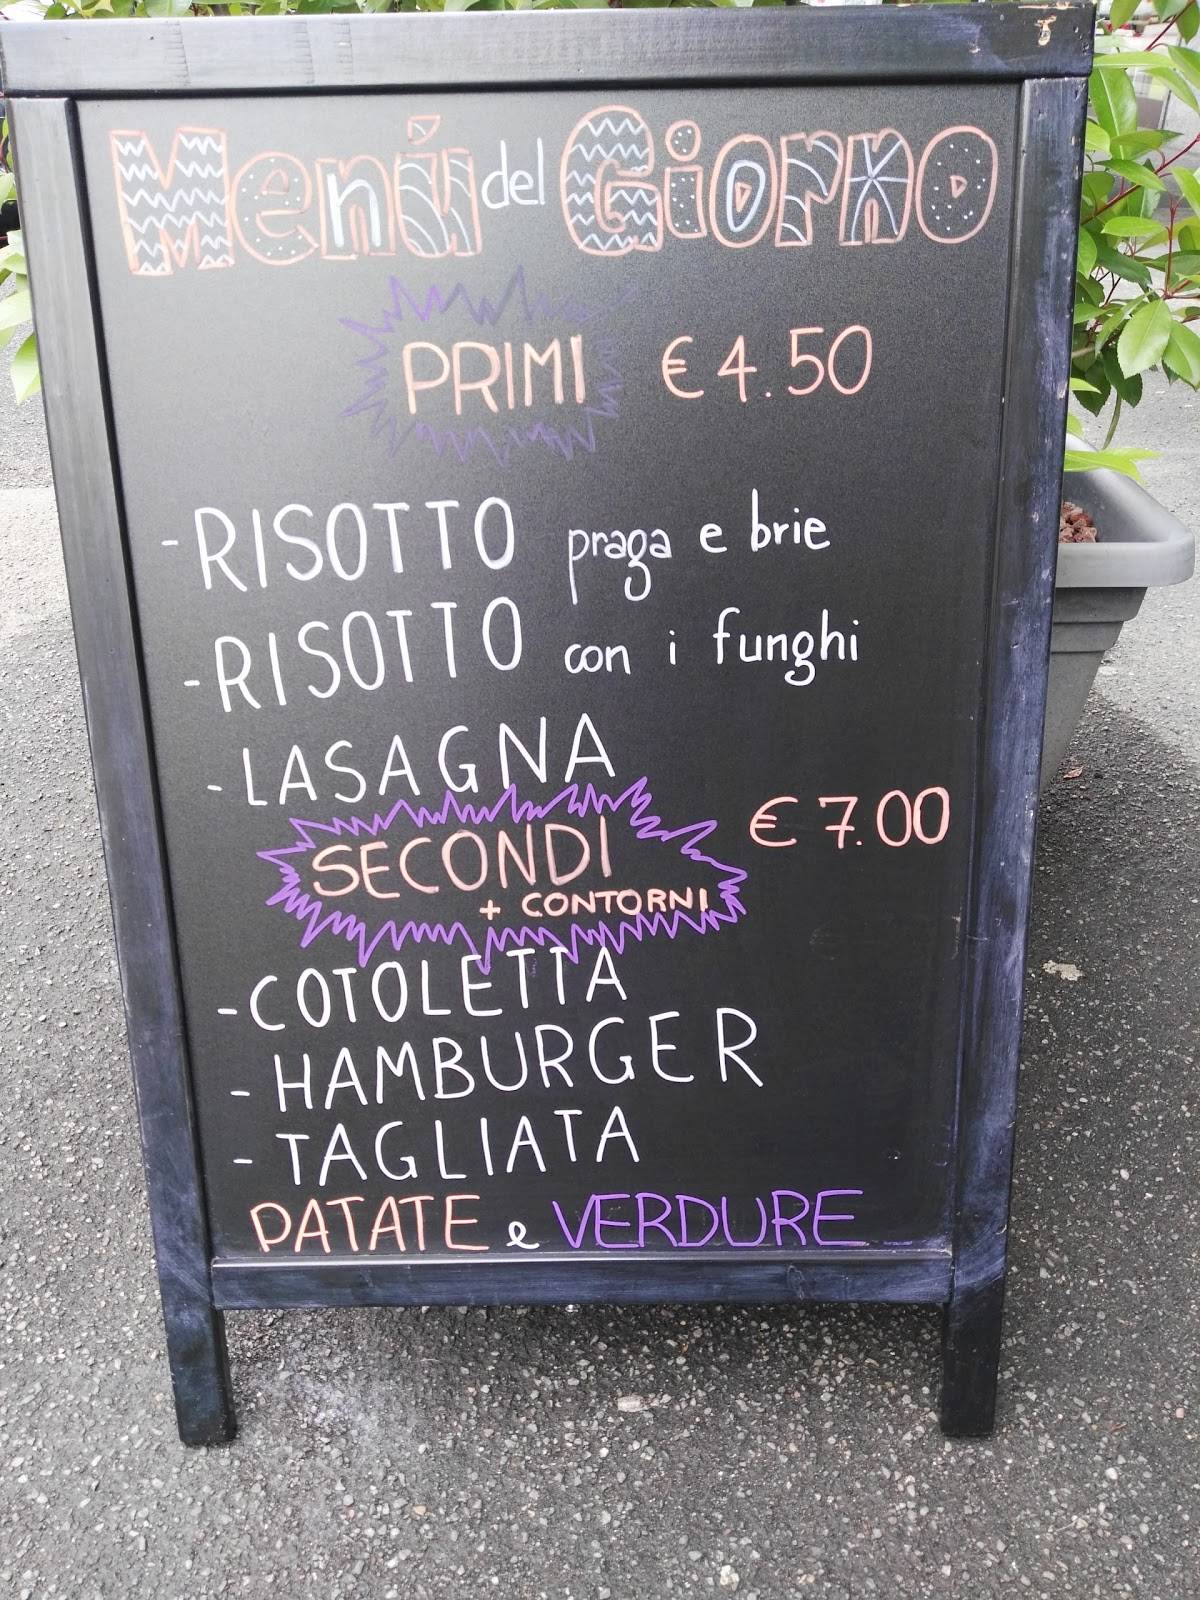 Menú del Giorno
PRIMI € 4.50
- RISOTTO praga e brie
- RISOTTO con i funghi
- LASAGNA
SECONDI € 7.00
+ CONTORNI
- COTOLETTA
- HAMBURGER
- TAGLIATA
PATATE e VERDURE